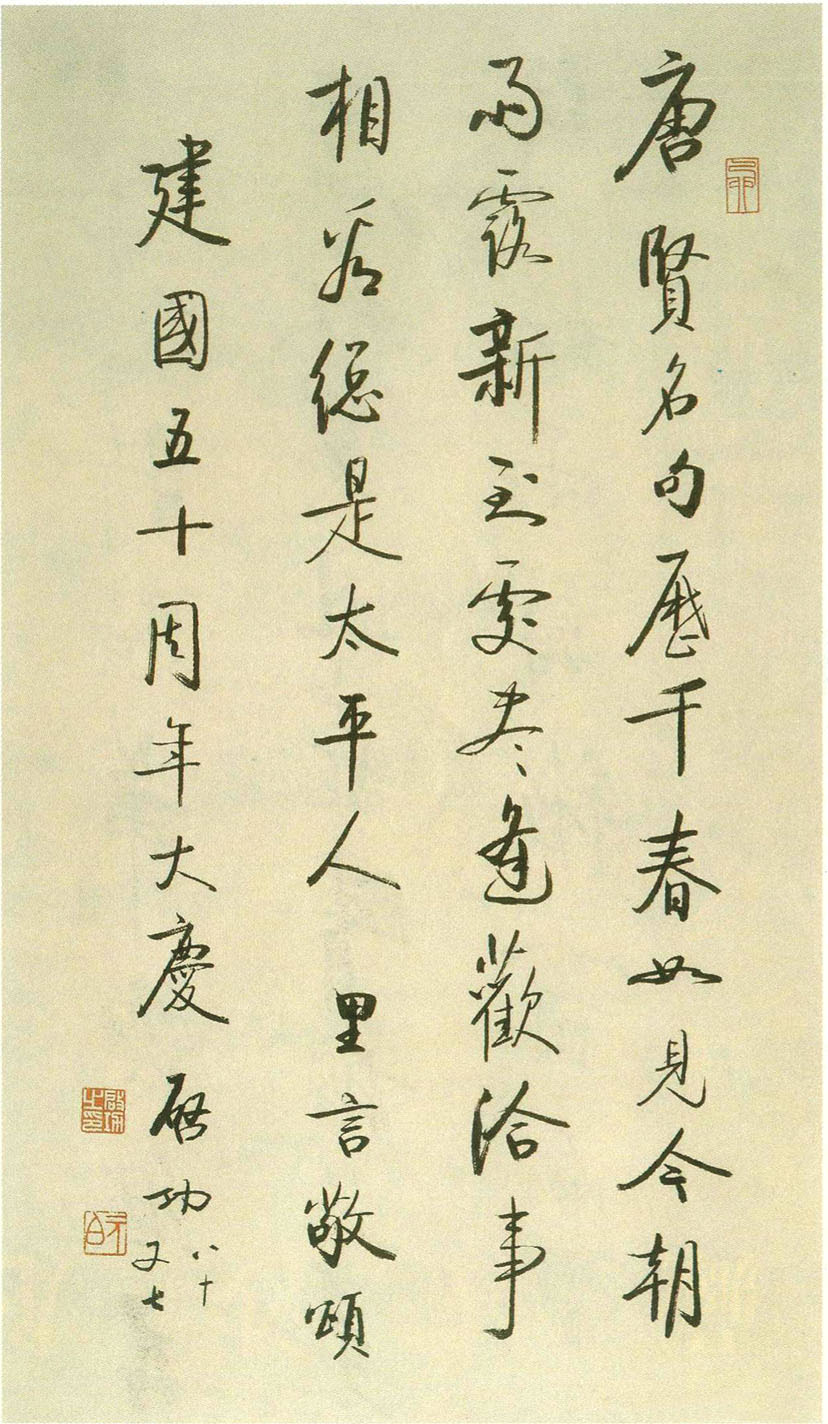 唐賢名句歷千春如見今朝
雨露新到處盡逢歡洽事
相看總是太平人 里言敬頌
建國五十周年大慶 啟功 八十又七
啟功之印